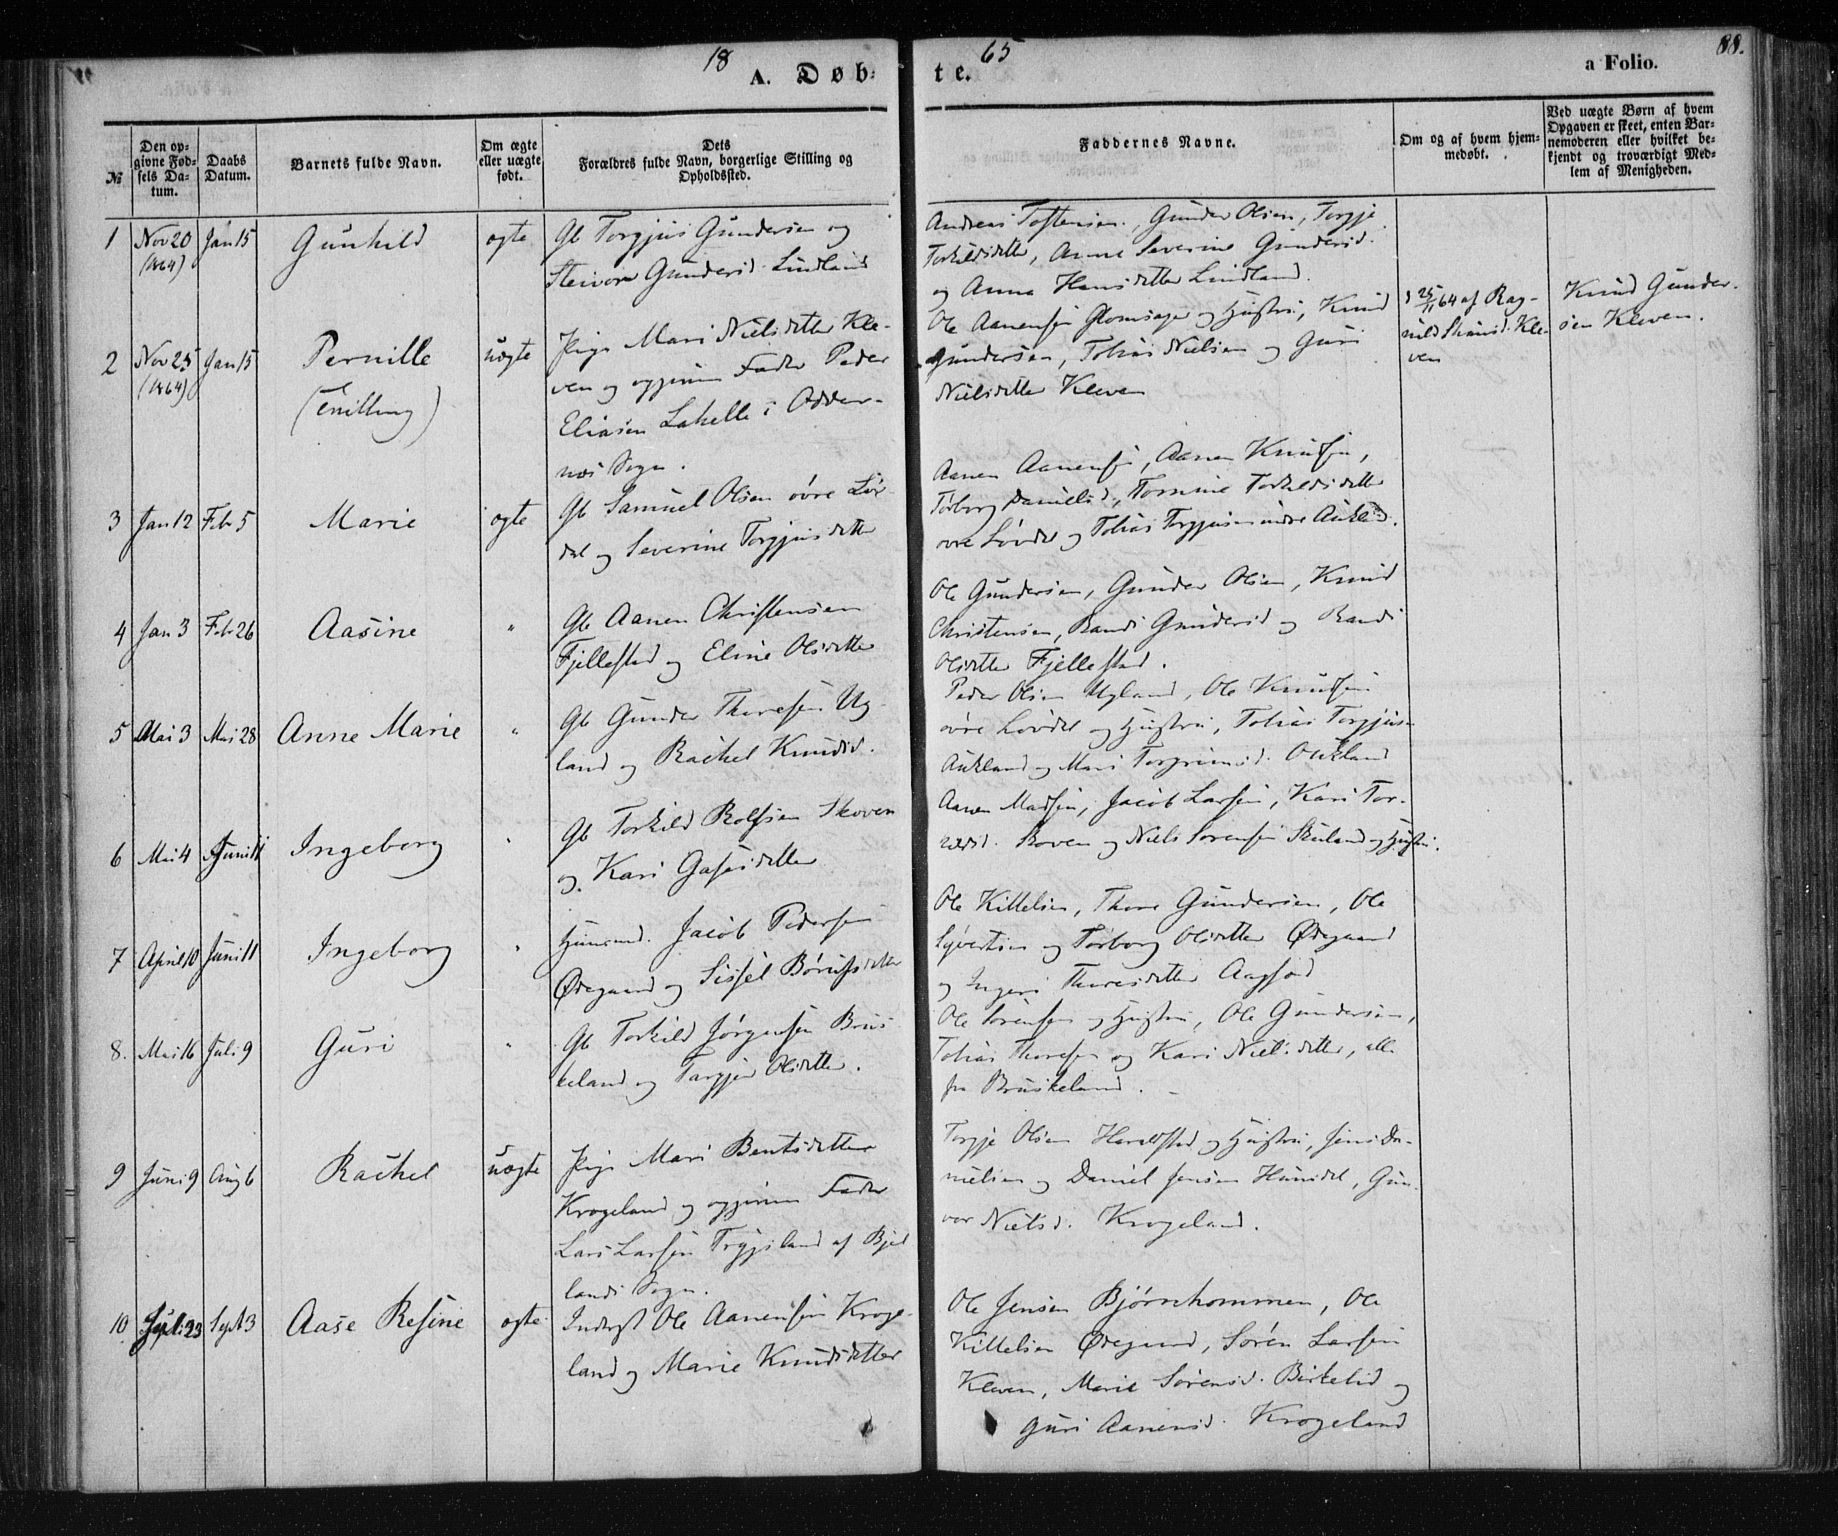 18 65 88.
A. Døb- te. a Folio.
№ Den opgivne Fødsels Datum. Daabs Datum. Barnets fulde Navn. Om ægte eller uægte født. Dets Forældres fulde Navn, borgerlige Stilling og Opholdssted. Faddernes Navne. Om og af hvem hjemmedøbt. Ved uægte Børn af hvem Opgaven er skeet, enten Barnemoderen eller hvilket bekjendt og troværdigt Medlem af Menigheden.
1 Nov 20 (1864) Jan 15 Gunhild ægte
Gb Torgjus Gundersen og
Steivor Gundersd. Lindland
Andreas Tostensen. Gunder Olsen, Torgje
Torkildsdatter, Anne Severine Gundersd.
og Anna Hansdatter Lindland.
2 Nov 25 (1864) Jan 15 Pernille (Tvilling) uægte
Pige Mari Nielsdatter Kle-
ven og opgiven Fader Peder
Eliasen Lahelle i Odder-
nes Sogn.
Ole Aanensen Glomsager og Hustru, Knud
Gundersen, Tobias Nielsen og Guri
Nielsdatter Kleven
25/11 64 af Rag-
nild Kle-
ven
Knud Gunder-
sen Kleven.
3 Jan 12 Feb 5 Marie ægte
Gb Samuel Olsen øvre Løv-
dal og Severine Torgjusdatter
Aanen Aanensen, Aanen Knudsen,
Torborg Danielsd., Tomine Torkildsdatter
øvre Løvdal og Tobias Torgjusen indre Aukland.
4 Jan 3 Feb 26 Aasine "
Gb Aanen Christensen
Fjellestad og Eline Olsdatter
Ole Gundersen, Gunder Olsen, Knud
Christensen, Randi Gundersd og Randi
Olsdatter Fjellestad.
5 Mai 3 Mai 28 Anne Marie "
Gb Gunder Thoresen Ug-
land og Rachel Knudsd.
Peder Olsen Ugland, Ole Knudsen
øvre Løvdal og Hustru, Tobias Torgjus-
Aukland og Mari Torgrimsd. Aukland
6 Mai 4 Juni 11 Ingeborg "
Gb Torkild Rolfsen Skoven
og Kari
Aanen Madsen, Jacob Larsen, Kari Tor-
Skoven og Niels Sørensen og Hustru.
7 April 10 Juni 11 Ingeborg "
Huusmd. Jacob Pedersen
Ødegaard og Sissel
Ole Kittelsen, Thore Gundersen, Ole
Syvertsen og Torborg Olsdatter Ødegaard
og Ingeri Thoresdatter
8. Mai 16 Juli 9 Guri "
Gb Torkild Jørgensen Brus-
keland og Torgjer Olsdatter.
Ole Sørensen og Hustru, Ole Gundersen,
Tobias Thoresen og Kari Nielsdatter, alle
fra Bruskeland.
9 Juni 9 Aug 6 Rachel uægte
Pige Mari Bentsdatter
Krogeland og opgiven Fader
Lars Larsen Trygsland af Bjel-
lands Sogn.
Torgje Olsen Haraldstad og Hustru, Jens Da-
nielsen og Daniel Jensen Hunsdal, Gun-
vor Nielsd. Krogeland.
10 Juli 23 Sept 3 Aase Resine ægte
Inderst Ole Aanensen Kroge-
land og Marie Knudsdatter
Ole Jensen Bjørnhommen, Ole
Kittelsen Ødegaard, Søren Larsen
Kleven, Marie Sørensd. Birkelid og
Guri Aanensd. Krogeland